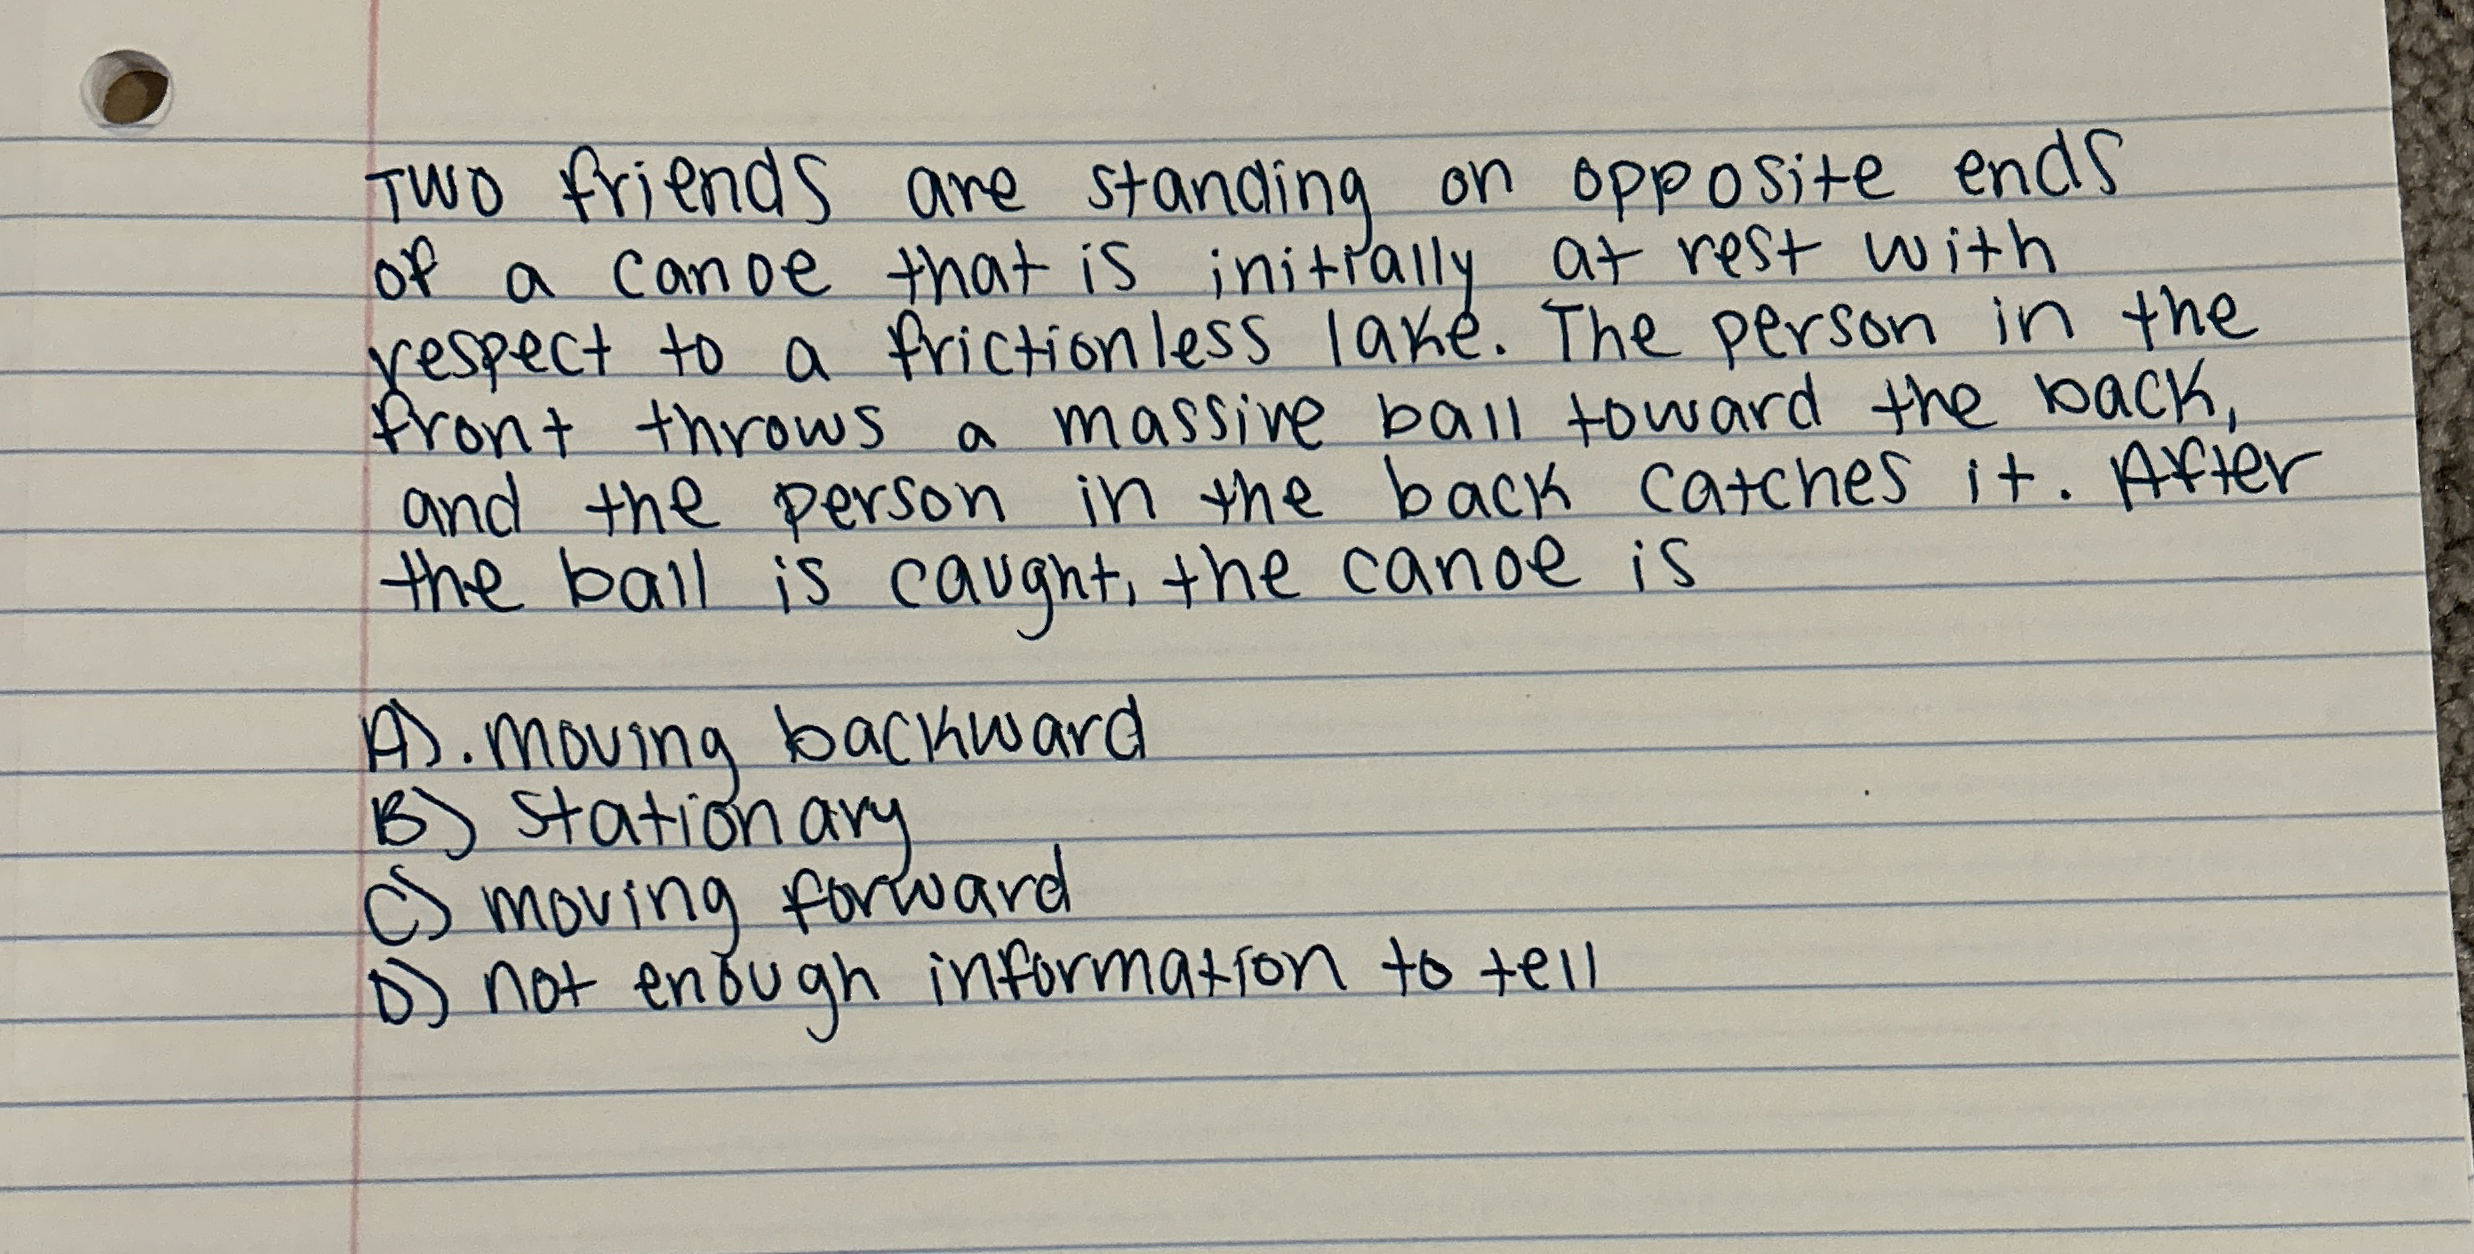 Two friends are standing on opposite ends
of a canoe that is initially at rest with
respect to a frictionless lake. The person in the
front throws a massive ball toward the back,
and the person in the back catches it. After
the ball is caught, the canoe is
A). moving backward
B) stationary
C) moving forward
D) not enough information to tell